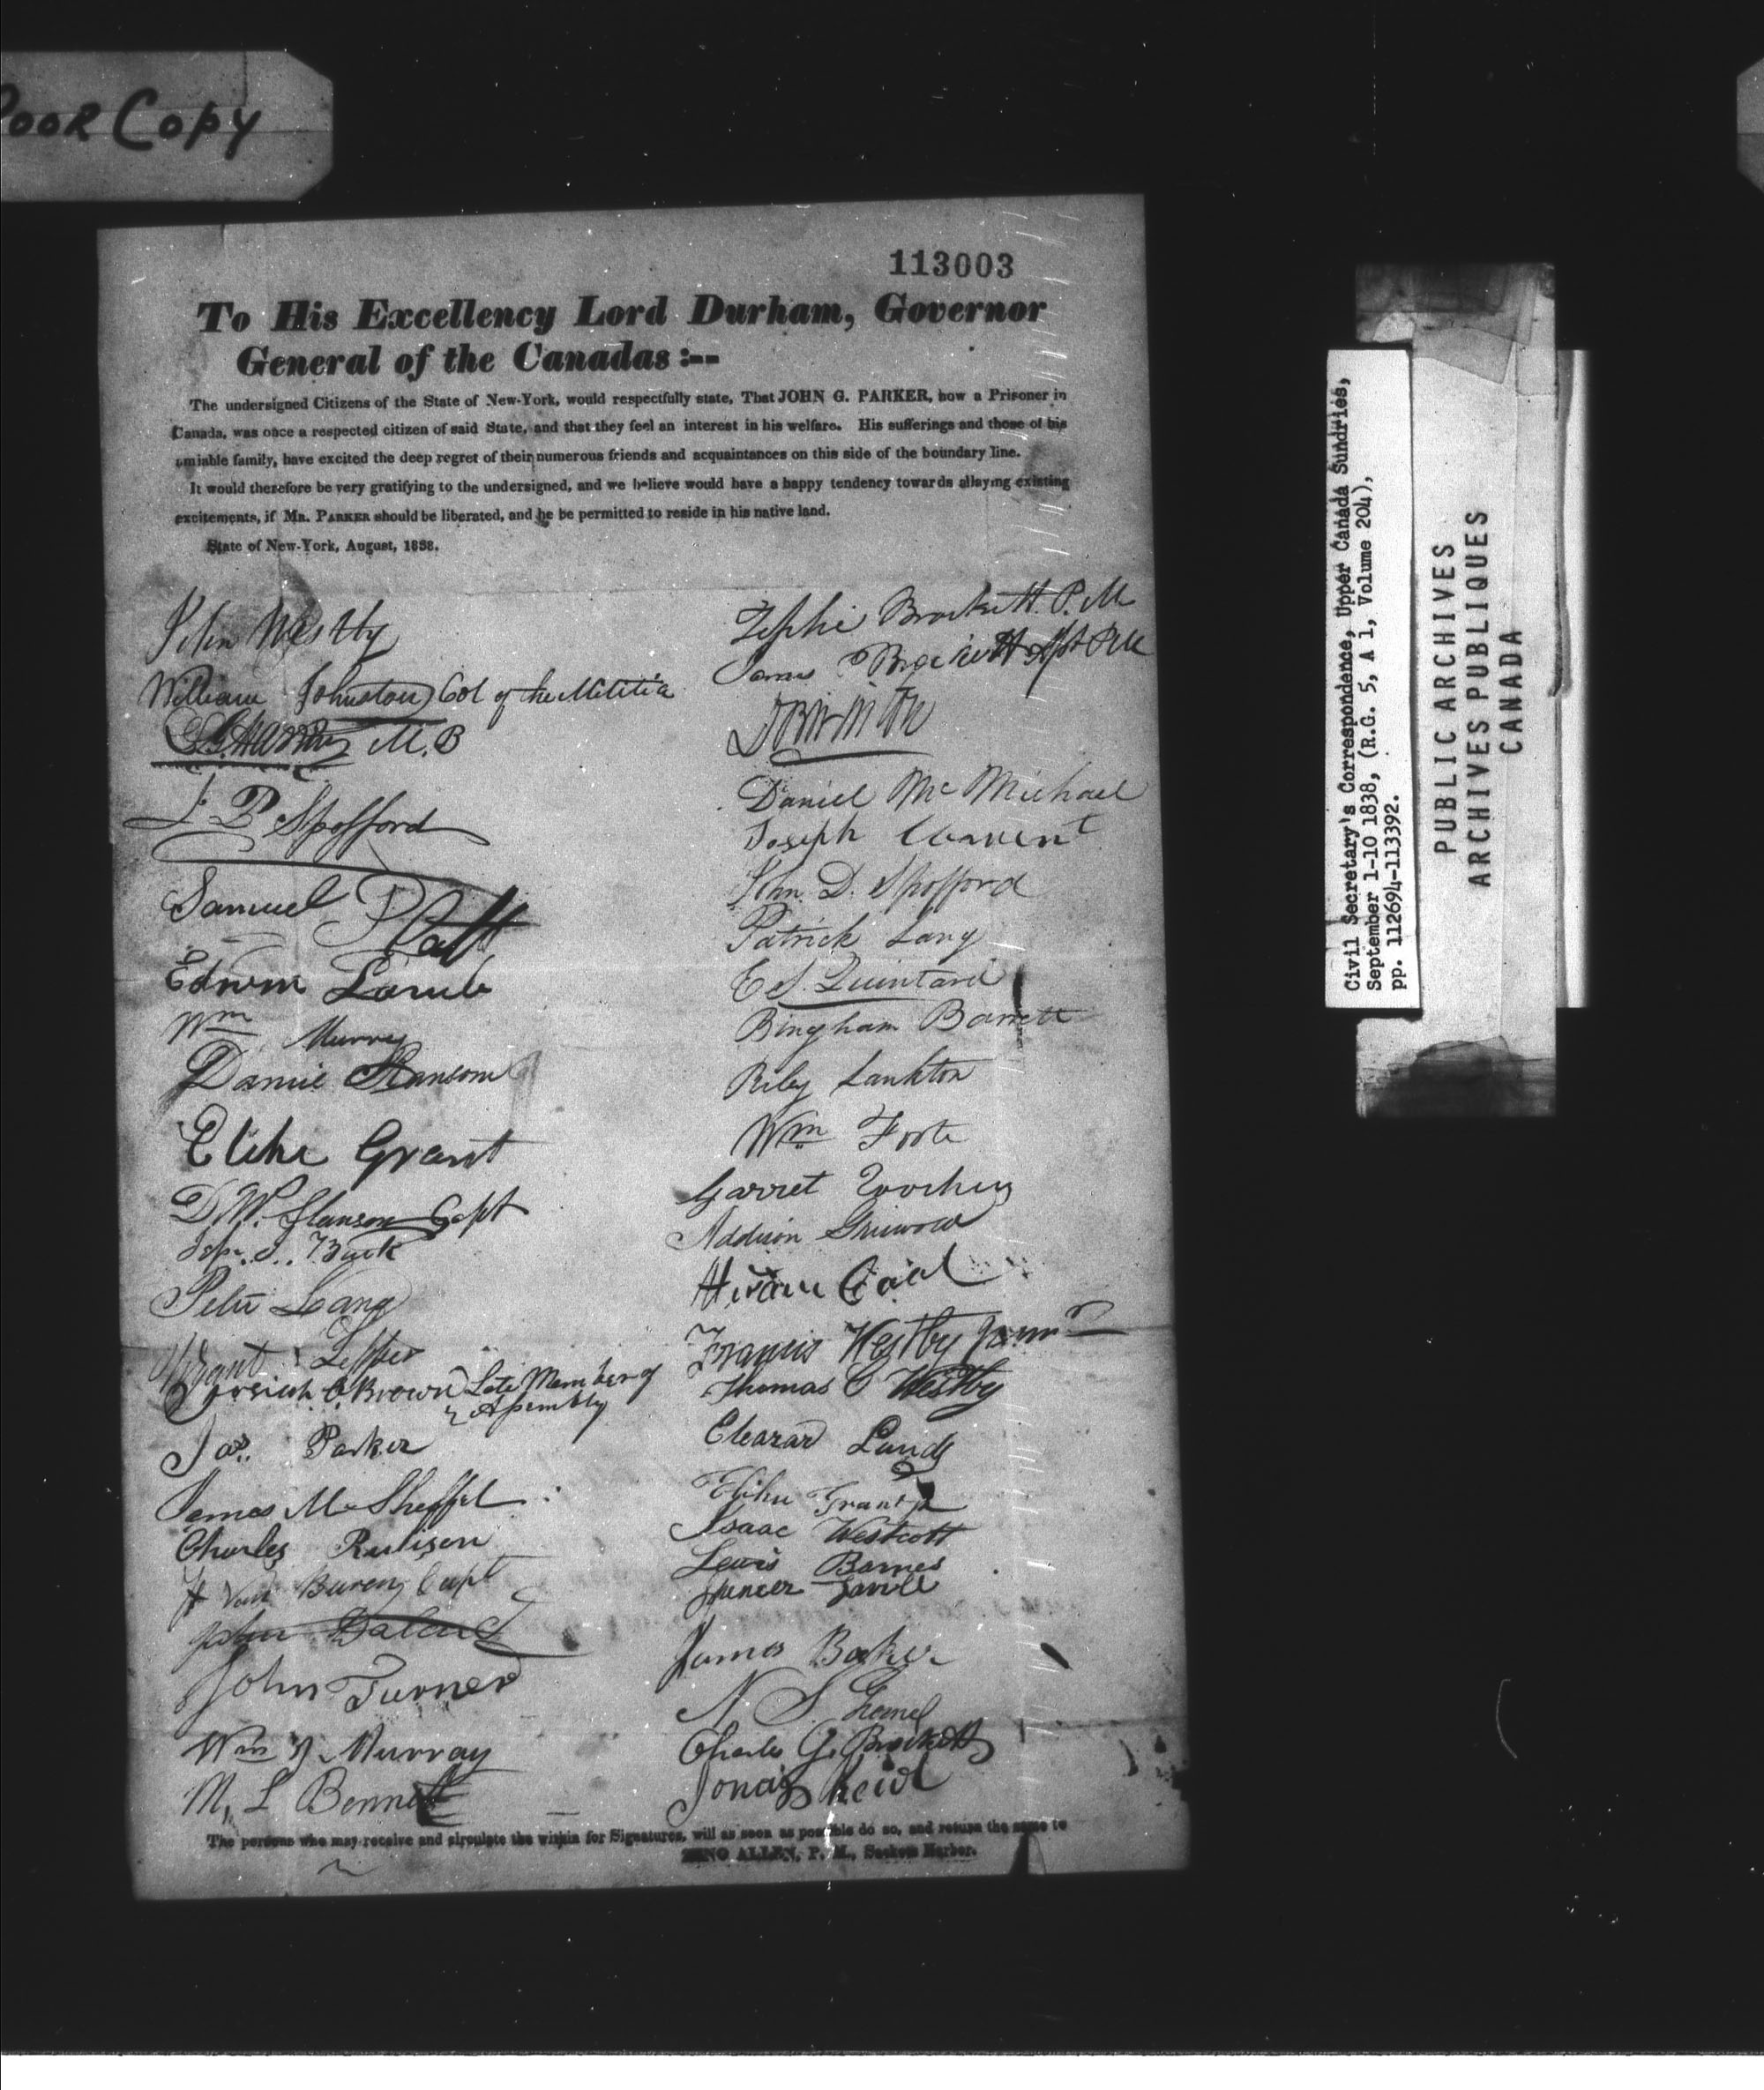 Poor Copy
113003
To His Excellency Lord Durham, Governor
General of the Canadas :--
The undersigned Citizens of the State of New-York, would respectfully state, That JOHN G. PARKER, now a Prisoner in
Canada, was once a respected citizen of said State, and that they feel an interest in his welfare. His sufferings and those of his
amiable family, have excited the deep regret of their numerous friends and acquaintances on this side of the boundary line.
It would therefore be very gratifying to the undersigned, and we believe would have a happy tendency towards allaying existing
excitements, if MR. PARKER should be liberated, and he be permitted to reside in his native land.
State of New-York, August, 1838.
John Westby
William Johnston Col of the Militia
M.B
L P Spofford
Samuel
Edwin Lamb
Wm Murray
Ransom
Elihu Grant
D W. Capt
Buck
Peter Lang
Grant
Josiah Brown Late Member of
Assembly
Jas. Parker
James
Charles Rulison
Van Buren Capt
John
John Turner
Wm Murray
M, L Bennett
Brockett P.M
James Brockett Ast PM
Daniel McMichael
Joseph
John D. Spofford
Patrick Lang
E S. Quintard
Bingham Barrett
Riley Lankton
Wm Foote
Garret
Addison
Hiram
Francis Westby
Thomas C Westby
Eleazar
Elihu Grant Jr
Isaac Westcott
Lewis Barnes
Spencer
James
N S
Charles G. Brockett
Jonas
The persons who may receive and circulate the within for Signatures, will as soon as possible do so, and return the same to
ZENO ALLEN, P. M., Sackets Harbor.
Civil Secretary's Correspondence, Upper Canada Sundries,
September 1-10 1838, (R.G. 5, A 1, Volume 204),
pp. 112694-113392.
PUBLIC ARCHIVES
ARCHIVES PUBLIQUES
CANADA